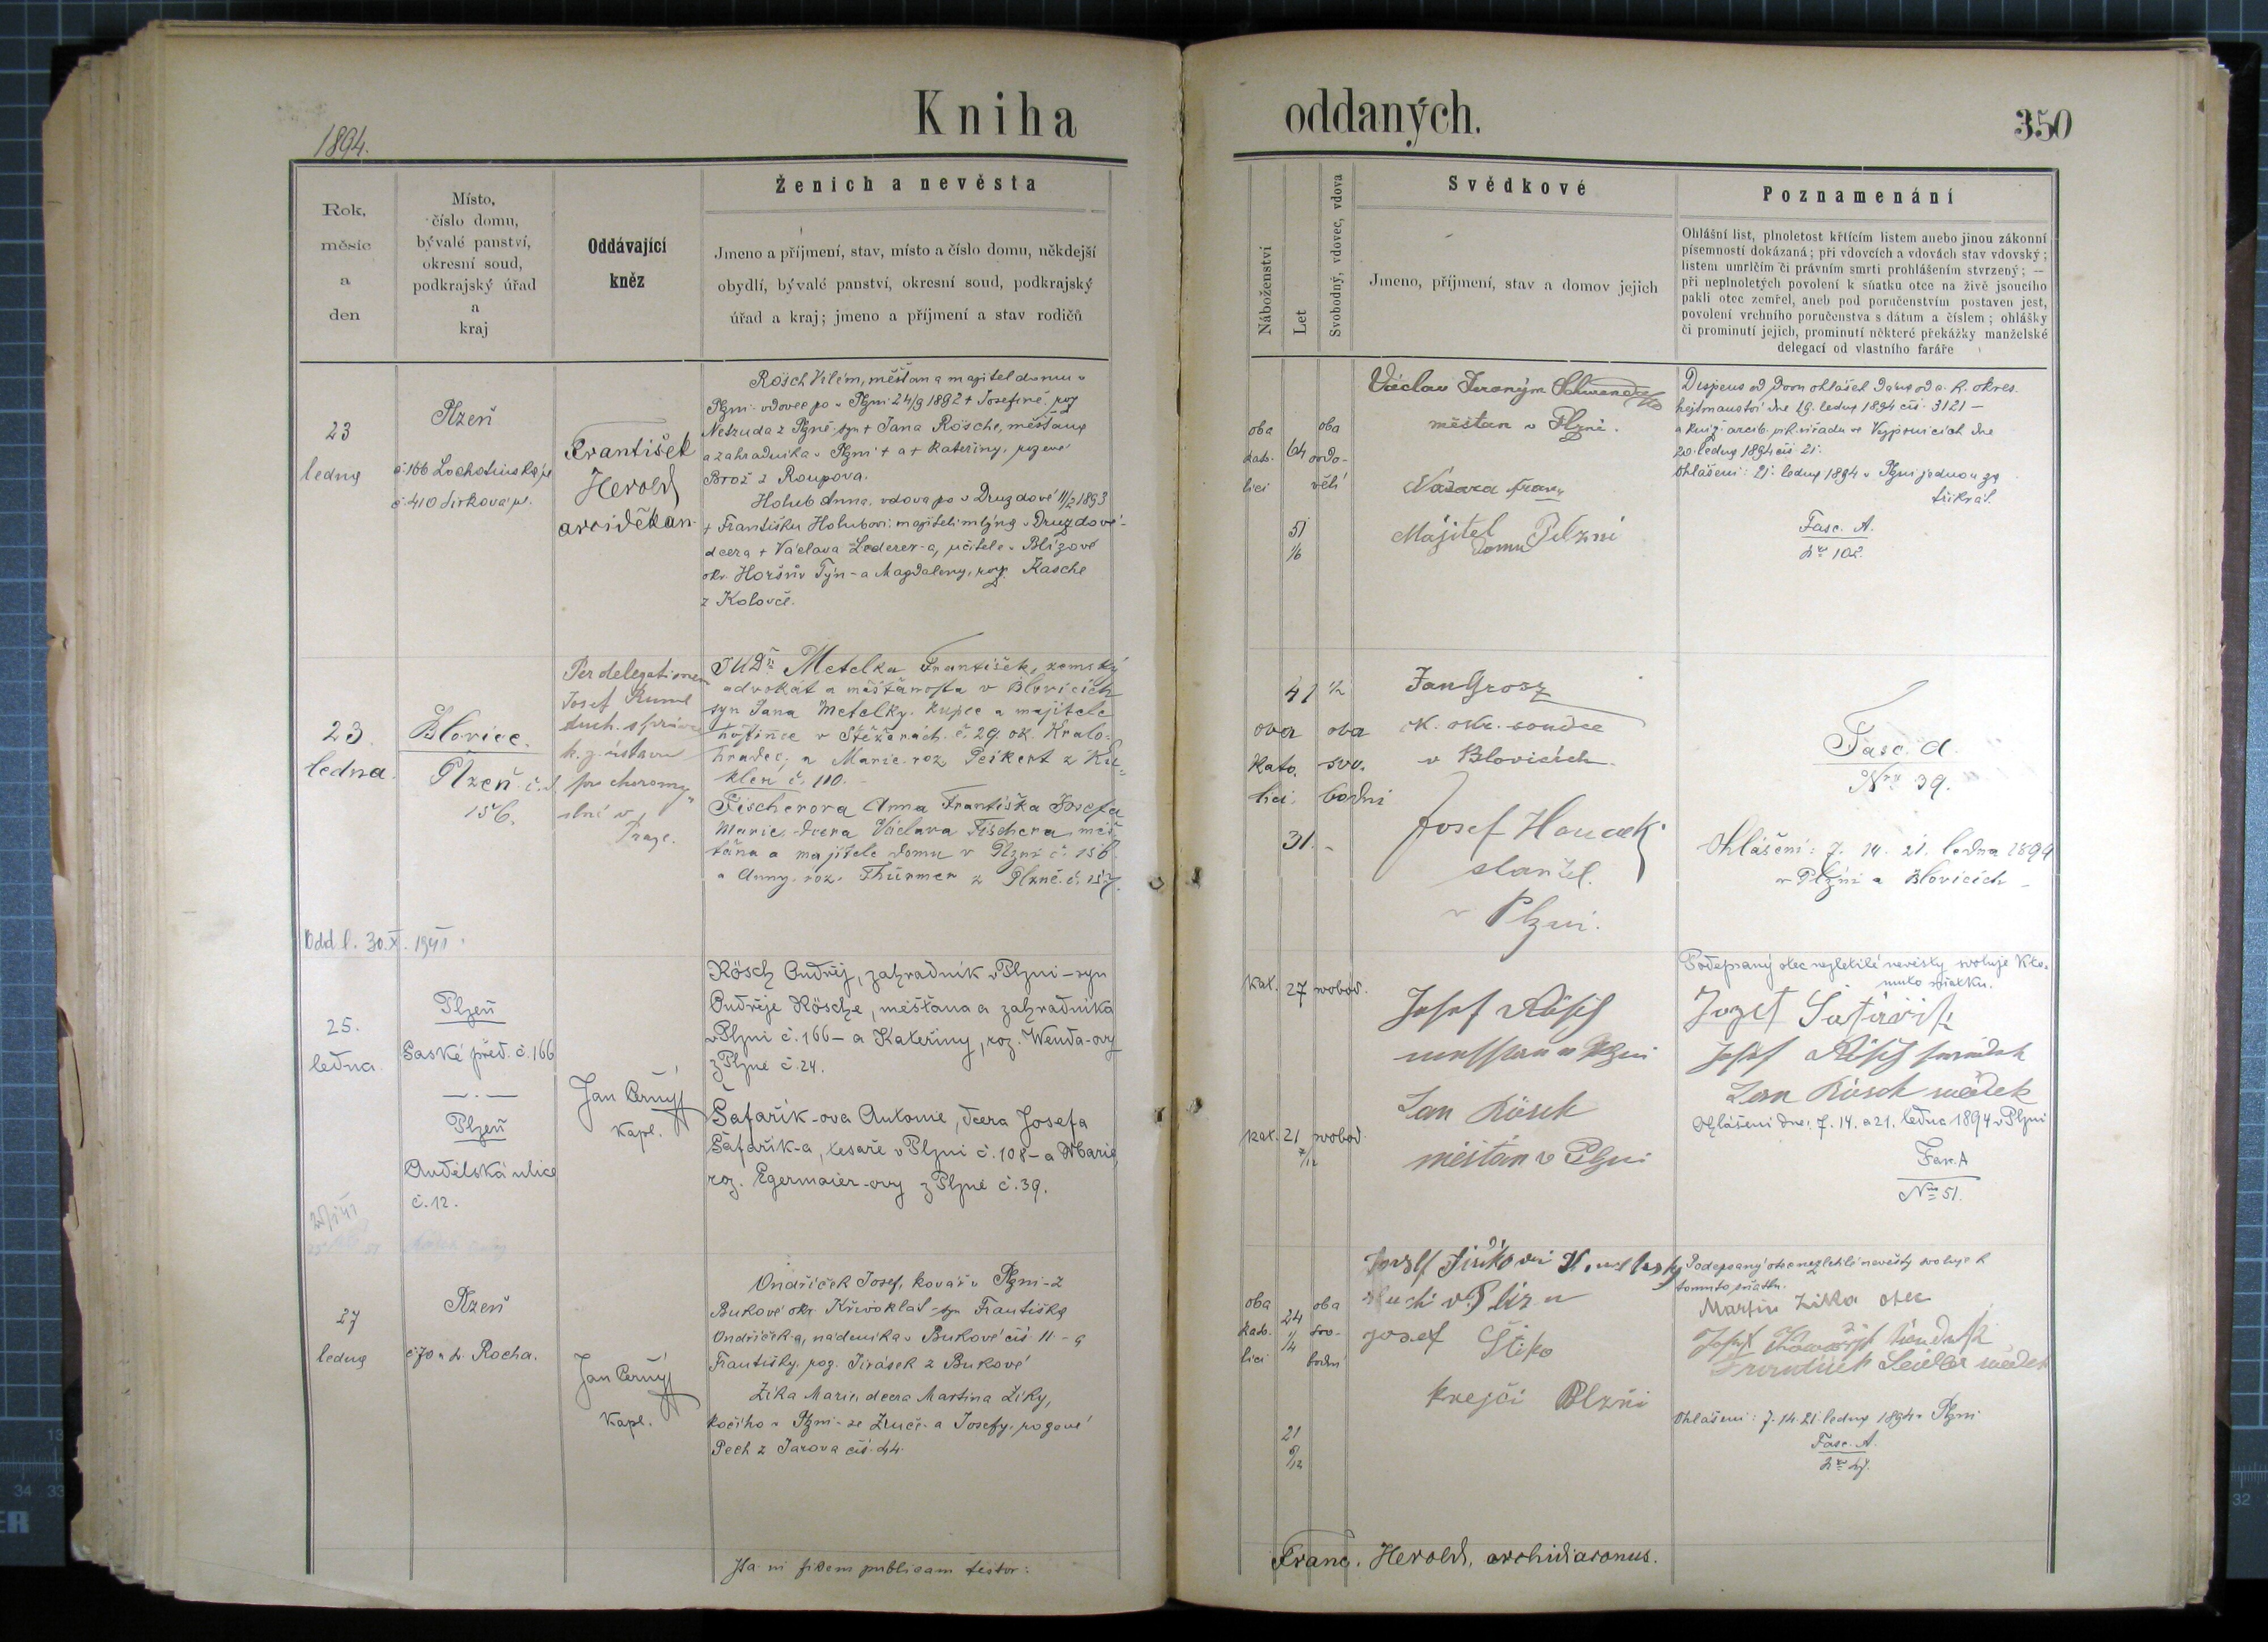 Kniha
oddaných.
350
1894.
Rok,
měsíc
a
den
Místo,
číslo domu,
bývalé panství,
okresní soud,
podkrajský úřad
a
kraj
Oddávající
kněz
Ženich a nevěsta
Jmeno a příjmení, stav, místo a číslo domu, někdejší
obydlí, bývalé panství, okresní soud, podkrajský
úřad a kraj; jmeno a příjmení a stav rodičů
Náboženství
Let
Svobodný, vdovec, vdova
Svědkové
Jmeno, příjmení, stav a domov jejich
Poznamenání
Ohlášní list, plnoletost křtícím listem anebo jinou zákonní
písemností dokázaná; při vdovcích a vdovách stav vdovský;
listem umrlčím či právním smrti prohlášením stvrzený; —
při neplnoletých povolení k sňatku otce na živě jsoucího
pakli otec zemřel, aneb pod poručenstvím postaven jest,
povolení vrchního poručenstva s dátum a číslem; ohlášky
či prominutí jejich, prominutí některé překážky manželské
delegací od vlastního faráře
23
ledna
Plzeň
č 166 Lochotínská
č 410 Jirkova ul.
František
Herold
arciděkan
Rösch Vilém, měšťan a majitel domu v
Plzni - vdovec po v Plzni 24/9 1892 + Josefině, roz
Netruda z Plzně - syn + Jana Rösche, měšťana
a zahradníka v Plzni + a + Kateřiny, rozené
Brož z Roupova.
Holub Anna, vdova po v Druzdové 11/2 1893
+ Františku Holubovi majiteli mlýna v Druzdové -
dcera + Václava Lederer-a, učitele v Blízové
okr. Horšův Týn - a Magdaleny, roz. Kasche
z Koloveč.
oba
kato-
lici
64
51
1/6
oba
ovdo-
vělí
Václav Jeroným
měšťan v Plzni.
Franz
Majitel
domu Pilzni
Dispens od dvou ohlášek dána od c. k. okres.
hejtmanství dne 19. ledna 1894 čís. 3121 —
20. ledna 1894 čís 21.
Ohlášení: 21. ledna 1894 v Plzni jednou za
třikrát.
Fasc. A.
Nro 102
23
ledna.
Blovice.
Plzeň č. d.
156.
Per delegationem
Josef
duch. správce
k. z. ústavu
pro choromy-
slné v
Praze.
JUDr Metelka František, zemský
advokát a měšťanosta v Blovicích
syn Jana Metelky, kupce a majitele
hostince v Stěžerách č. 29. ok. Kralo-
hradec, a Marie roz Peikert z Ku-
klen č. 110.
Fischerova Anna Františka Josefa
Marie - dcera Václava Fischera měš-
ťana a majitele domu v Plzni č. 156
a Anny roz. Thürmer z Plzně č. 157.
41 1/2
oba
kato.
lici.
31. -
oba
svo.
bodni
Jan Grosz
c. k. okr. soudce
v Blovicích.
Josef Houdek
v Plzni.
Fasc. A.
Nro 39.
Ohlášení: 7. 14. 21. ledna 1894
v Plzni a Blovicích —
Odd l. 30. X. 1941.
25.
ledna.
Plzeň
Saské před. č. 166
— . —
Plzeň
Andělská ulice
č. 12.
Jan Černý
kapl.
Rösch Ondřej, zahradník v Plzni - syn
Ondřeje Rösche, měšťana a zahradníka
v Plzni č. 166 - a Kateřiny, roz. Wenda-ovy
z Plzně č. 24.
Šafařík-ova Antonie, dcera Josefa
Šafařík-a, tesaře v Plzni č. 108 - a Marie,
roz. Egermaier-ovy z Plzně č. 39.
kat. 27 svobod.
kat. 21 svobod.
7/12
Josef Rösch
v Plzni
Jan Rösch
měštán v Plzni
Podepsaný otec nezletilé nevěsty svoluje k to-
muto sňatku.
Jozef Šafařík
Josef Rösch
Jan Rösch svědek
Ohlášení dne: 7. 14. a 21. ledna 1894 v Plzni
Fasc. A
Nro 51.
27
ledna
Plzeň
č 70 u sv. Rocha.
Jan Černý
kapl.
Ondříček Josef, kovář v Plzni - z
Bukové okr. Křivoklat - syn Františka
Ondříčka, nádeníka v Bukové čís 11 - a
Františky, roz. Jirásek z Bukové
Žika Marie, dcera Martina Žiky,
kočího v Plzni - ze Žruče a Josefy, rozené
Pech z Jarova čís 44.
oba
kato-
lici
24
1/4
21
9/12
oba
svo-
bodni
Josef
krejčí Plzni
Podepsaný otec nezletilé nevěsty svoluje k
tomuto sňatku.
Martin Žika otec
svědek
Ohlášení: 7. 14. 21. ledna 1894 v Plzni
Fasc. A.
Ita in fidem publicam testor:
Franc. Herold, archidiaconus.